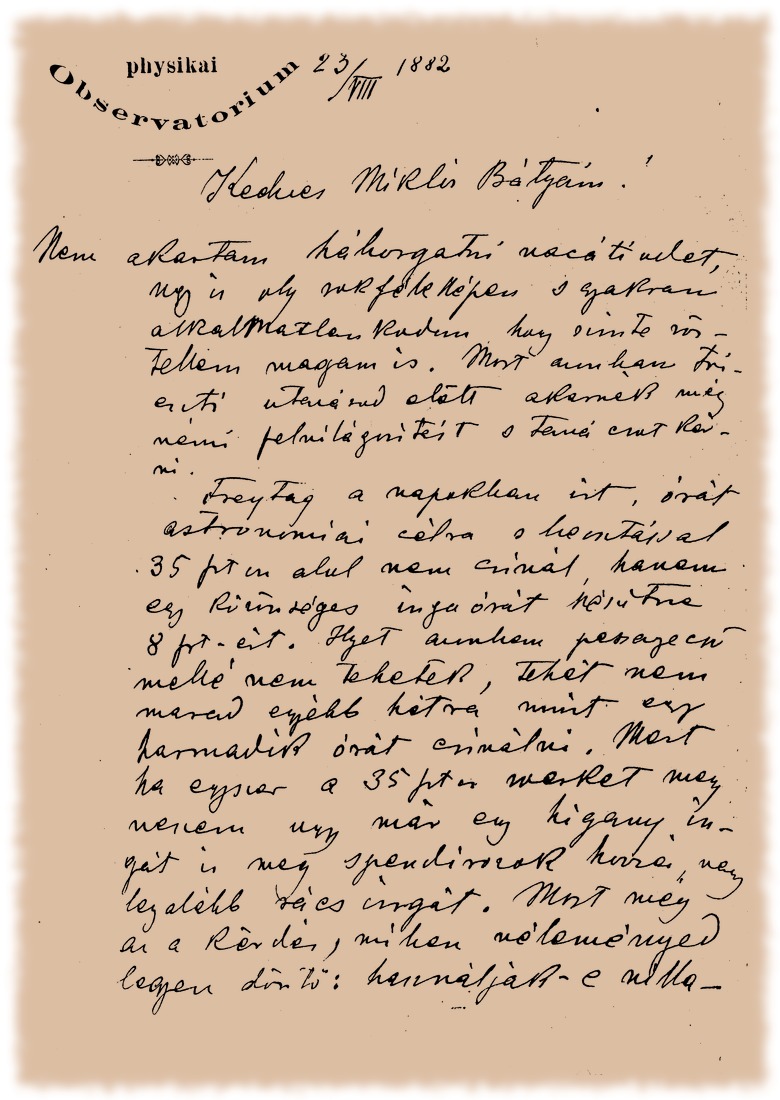 physikai
Observatorium
23/VIII 1882
Kedves Miklós Bátyám!
Nem akartam háborgatni vacátiodat,
úgy is oly sokféleképen s gyakran
alkalmatlankodom hogy szinte rös-
tellem magam is. Most azonban Tri-
eszti utazásod előtt akarnék még
némi felvilágosítást s tanácsot kér-
ni.
Freytag a napokban írt, órát
astronomiai célra s beosztással
35 frton alul nem csinál, hanem
egy közönséges inga órát készítne
8 frt-ért. Ilyet azonban passagecső
mellé nem tehetek, tehát nem
marad egyébb hátra mint egy
harmadik órát csinálni. Mert
ha egyszer a 35 frtos werket meg
veszem ugy már egy higany in-
gát is meg spendirozok hozzá, vagy
legalább rács ingát. Most még
az a kérdés, miben véleményed
legyen döntő: használják-e villa-